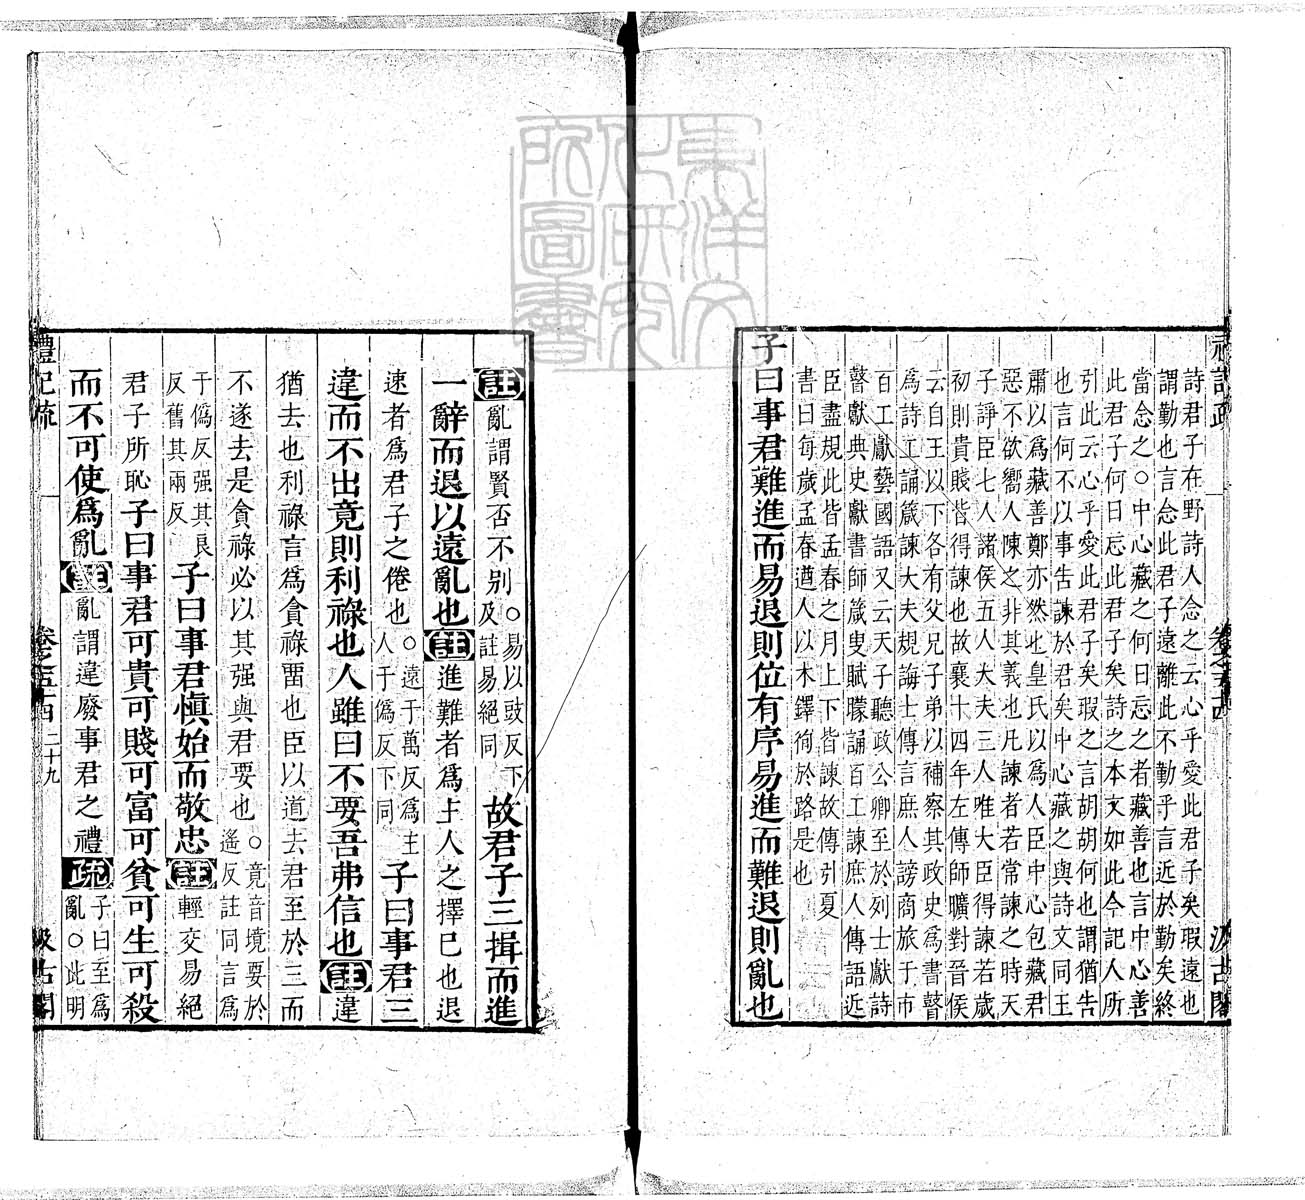 禮記疏 卷之五十四 汲古閣
詩君子在野詩人念之云心乎愛此君子矣瑕遠也
謂勤也言念此君子遠離此不勤乎言近於勤矣終
當念之○中心藏之何日忘之者藏善也言中心善
此君子何日忘此君子矣詩之本文如此今記人所
引此云心乎愛此君子矣瑕之言胡胡何也謂猶告
也言何不以事告諫於君矣中心藏之與詩文同王
肅以為藏善鄭亦然也皇氏以為人臣中心包藏君
惡不欲嚮人陳之非其義也凡諫者若常諫之時天
子諍臣七人諸侯五人大夫三人唯大臣得諫若歲
初則貴賤皆得諫也故襄十四年左傳師曠對晉侯
云自王以下各有父兄子弟以補察其政史爲書瞽
爲詩工誦箴諫大夫規誨士傳言庶人謗商旅于市
百工獻藝國語又云天子聽政公卿至於列士獻詩
瞽獻典史獻書師箴叟賦矇誦百工諫庶人傳語近
臣盡規此皆孟春之月上下皆諫故傳引夏
書曰每歲孟春遒人以木鐸徇於路是也
子曰事君難進而易退則位有序易進而難退則亂也
註 亂謂賢否不别○易以豉反下及註易絕同 故君子三揖而進
一辭而退以遠亂也 註 進難者爲主人之擇巳也退
速者爲君子之倦也○遠于萬反爲主人于僞反下同 子曰事君三
違而不出竟則利祿也人雖曰不要吾弗信也 註 違
猶去也利祿言爲貪祿畱也臣以道去君至於三而
不遂去是貪祿必以其强與君要也○竟音境要於遙反註同言爲
于僞反强其良反舊其兩反 子曰事君愼始而敬忠 註 輕交易絕
君子所恥 子曰事君可貴可賤可富可貧可生可殺
而不可使爲亂 註 亂謂違廢事君之禮 疏 子曰至爲亂○此明
禮記疏 卷之五十四 二十九 汲古閣
東洋文化研究所圖書